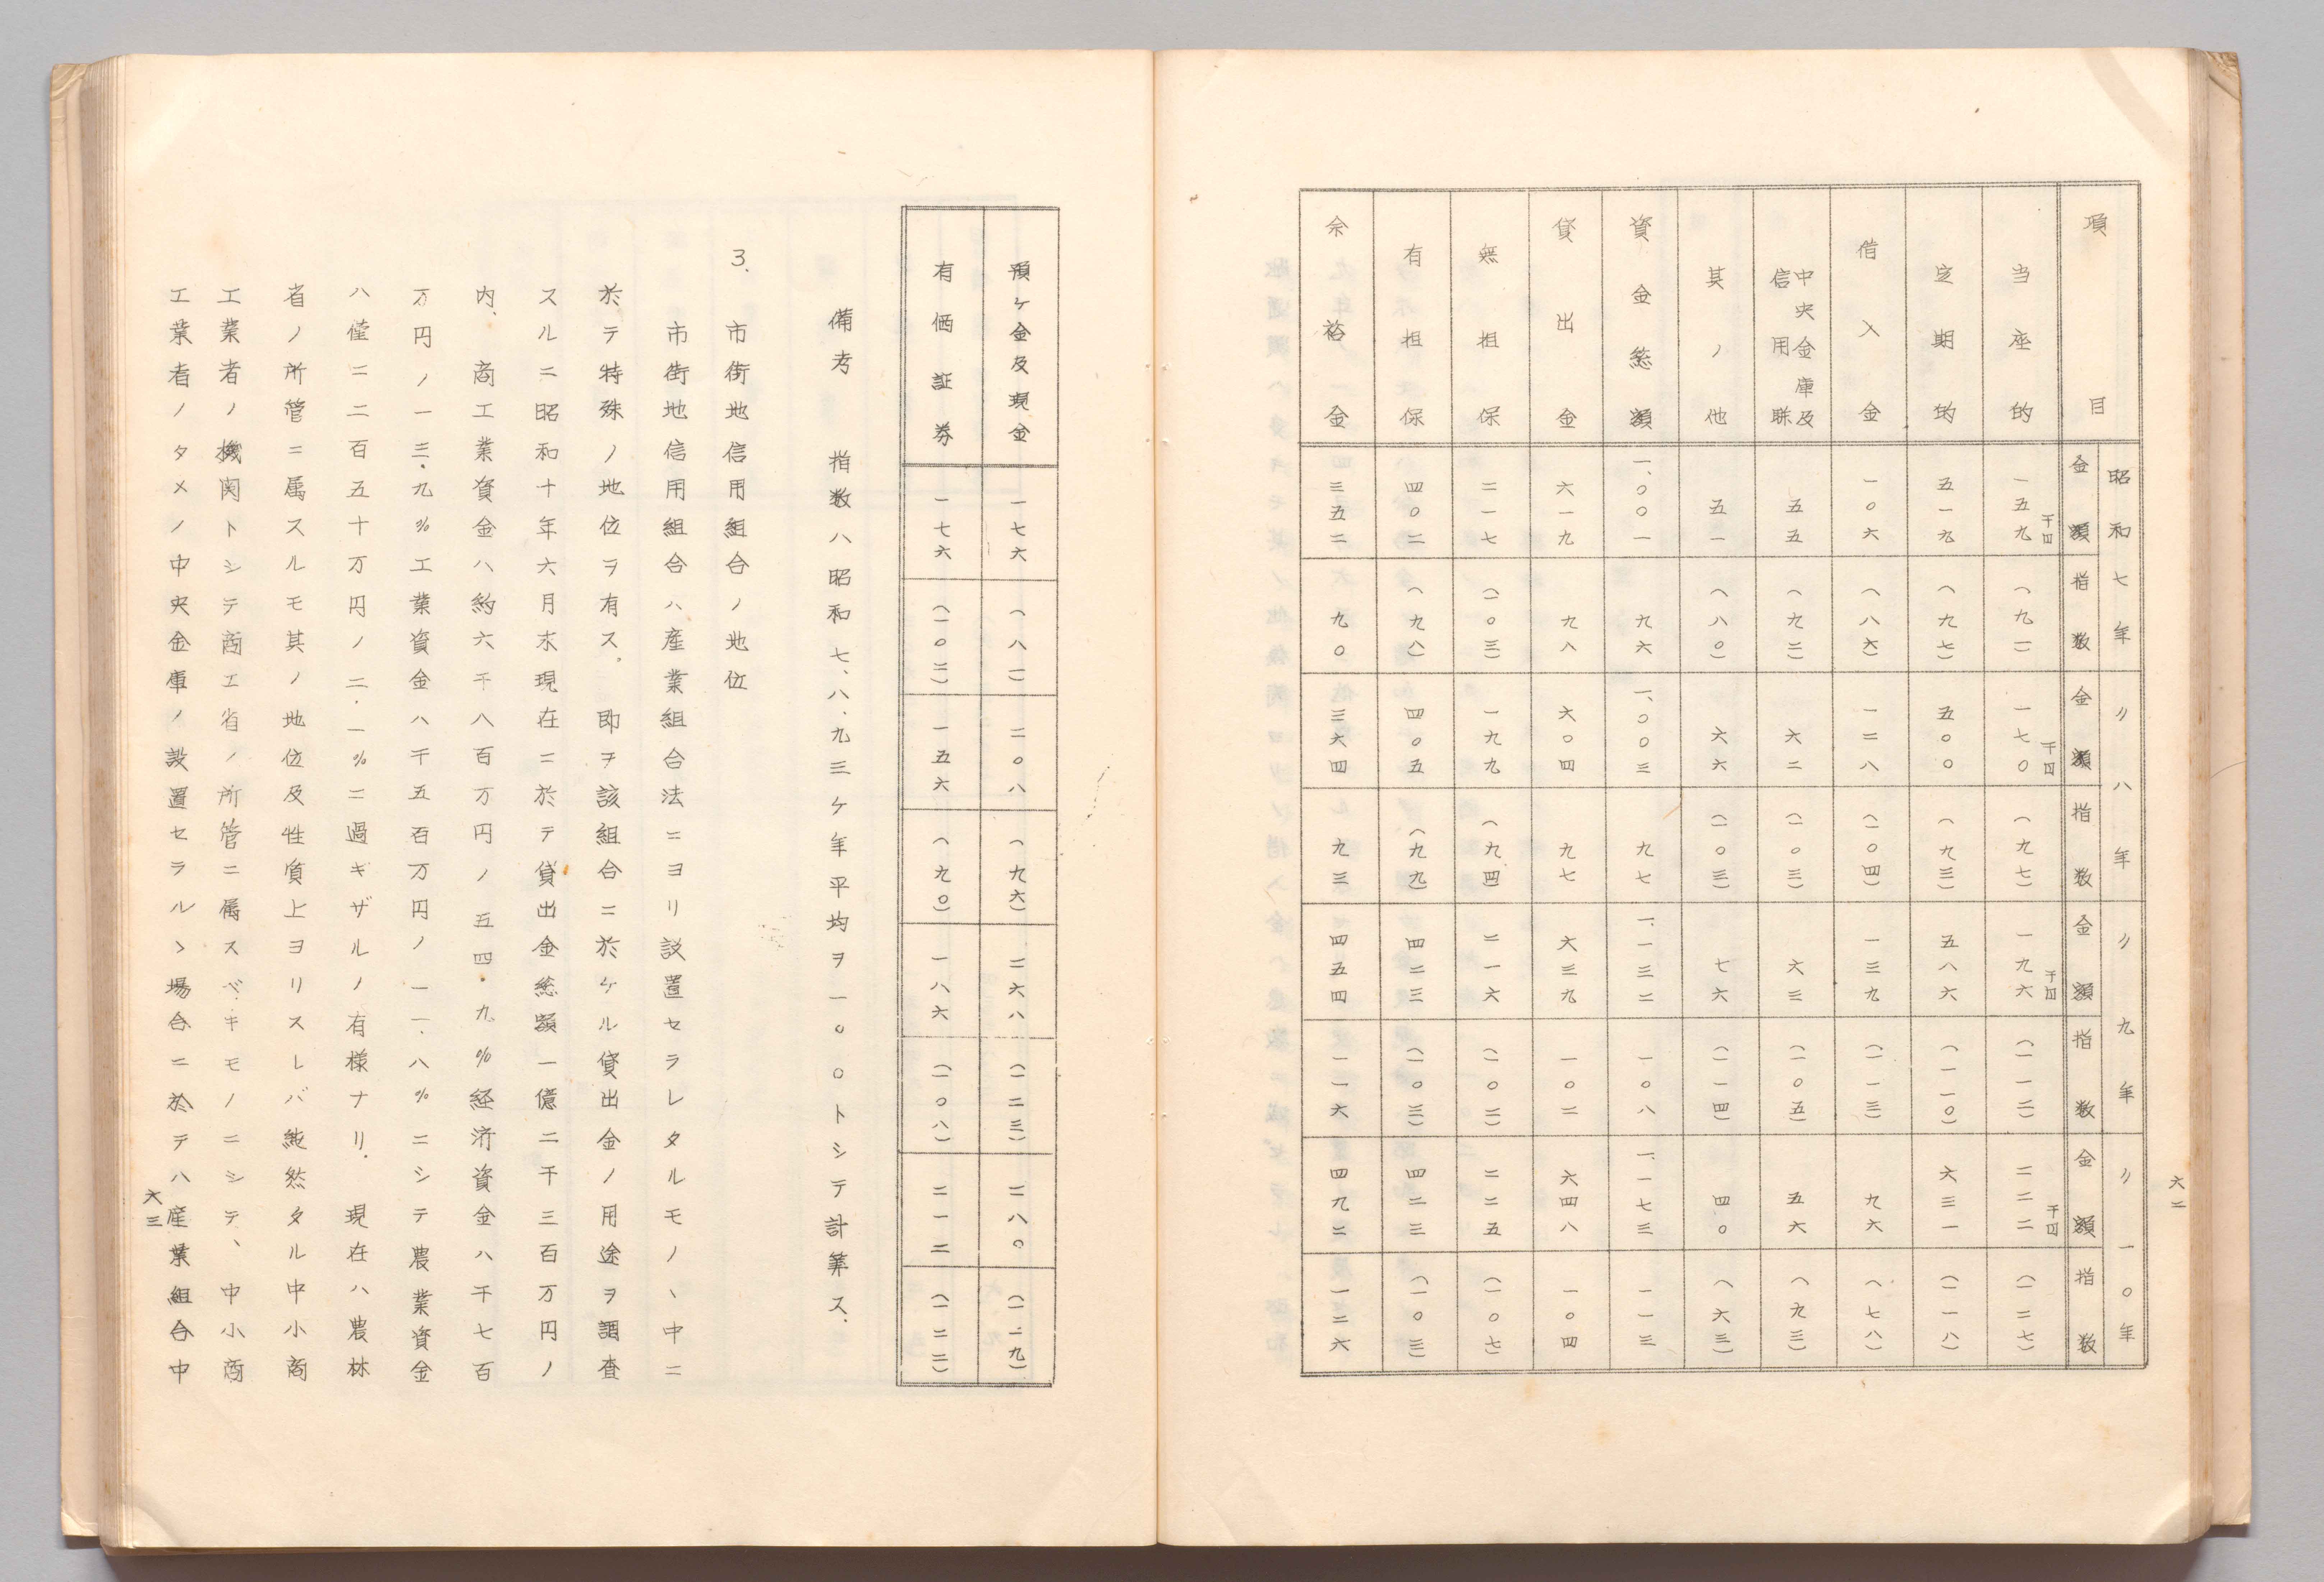 六二
項目 昭和七年 〃八年 〃九年 〃一〇年
金額 指数 金額 指数 金額 指数 金額 指数
当座的 一五九千円 (九一) 一七〇千円 (九七) 一九六千円 (一一二) 二二二千円 (一二七)
定期的 五一九 (九七) 五〇〇 (九三) 五八六 (一一〇) 六三一 (一一八)
借入金 一〇六 (八六) 一二八 (一〇四) 一三九 (一一三) 九六 (七八)
中央金庫及信用聯 五五 (九二) 六二 (一〇三) 六三 (一〇五) 五六 (九三)
其ノ他 五一 (八〇) 六六 (一〇三) 七六 (一一四) 四〇 (六三)
資金総額 一、〇〇一 九六 一、〇〇三 九七 一、一三二 一〇八 一、一七三 一一三
貸出金 六一九 九八 六〇四 九七 六三九 一〇二 六四八 一〇四
無担保 二一七 (一〇三) 一九九 (九四) 二一六 (一〇二) 二二五 (一〇七)
有担保 四〇二 (九八) 四〇五 (九九) 四二三 (一〇三) 四二三 (一〇三)
余裕金 三五二 九〇 三六四 九三 四五四 一一六 四九二 一二六
預ケ金及現金 一七六 (八一) 二〇八 (九六) 二六八 (一二三) 二八〇 (一二九)
有価証券 一七六 (一〇二) 一五六 (九〇) 一八六 (一〇八) 二一二 (一二二)
備考 指数ハ昭和七、八、九三ケ年平均ヲ一〇〇トシテ計算ス、
3. 市街地信用組合ノ地位
市街地信用組合ハ産業組合法ニヨリ設置セラレタルモノヽ中ニ
於テ特殊ノ地位ヲ有ス。即ヲ該組合ニ於ケル貸出金ノ用途ヲ調査
スルニ昭和十年六月末現在ニ於テ貸出金総額一億二千三百万円ノ
内、商工業資金ハ約六千八百万円ノ五四.九%経済資金ハ千七百
万円ノ一三.九%工業資金ハ千五百万円ノ一一.八%ニシテ農業資金
ハ僅ニ二百五十万円ノ二.一%ニ過ギザルノ有様ナリ.現在ハ農林
省ノ所管ニ属スルモ其ノ地位及性質上ヨリスレバ純然タル中小商
工業者ノ機関トシテ商工省ノ所管ニ属スベキモノニシテ、中小商
工業者ノタメノ中央金庫ノ設置セラルヽ場合ニ於テハ産業組合中
六三